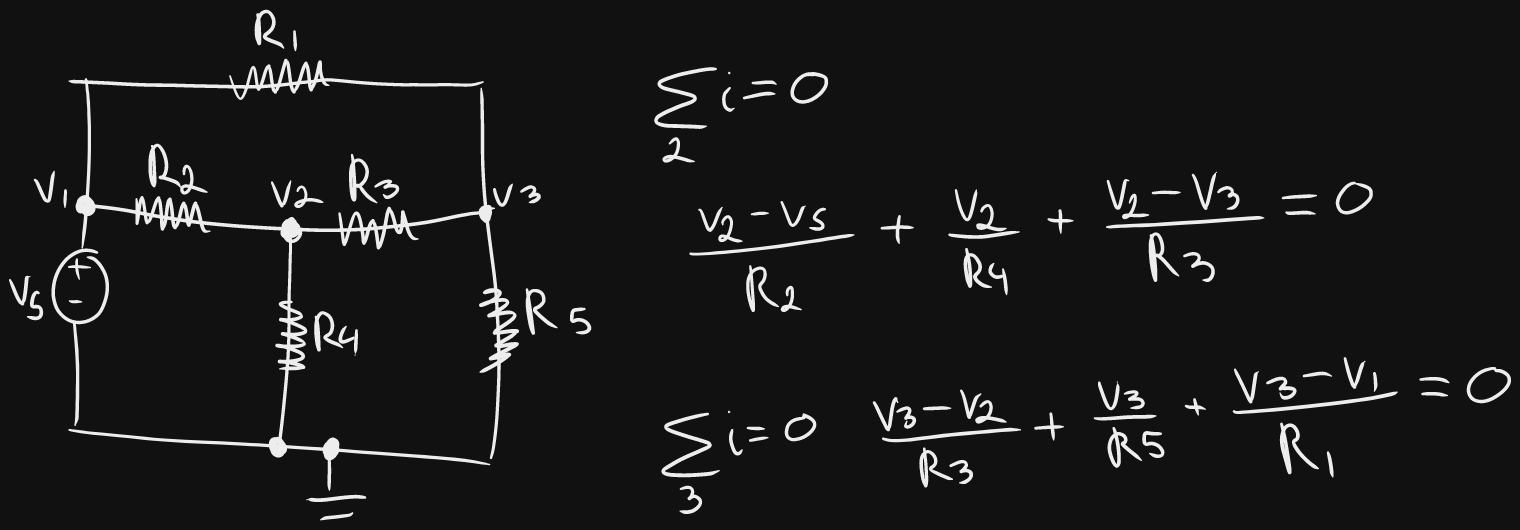 R1
V1
R2
V2
R3
V3
+
-
Vs
R4
R5
∑ i = 0
2
(V2 - Vs)/R2 + V2/R4 + (V2 - V3)/R3 = 0
∑ i = 0 (V3 - V2)/R3 + V3/R5 + (V3 - V1)/R1 = 0
3